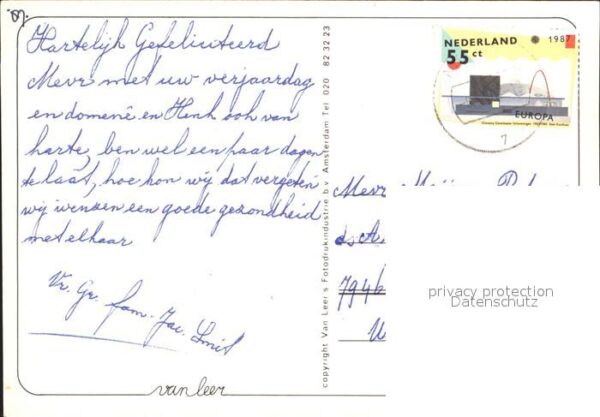 Hartelijk Gefeliciteerd
Mevr met uw verjaardag
en domené en Henk ook van
harte, ben wel een paar dagen
te laat, hoe kon wij dat vergeten
wij wensen een goede gezondheid
met elkaar
Vr. Gr. fam. Jac. Smit
van leer
copyright Van Leer's Fotodrukindustrie b.v. Amsterdam Tel 020 82 32 23
NEDERLAND 1987
55 ct
EUROPA
7
Mevr
ds A.
7946
privacy protection
Datenschutz